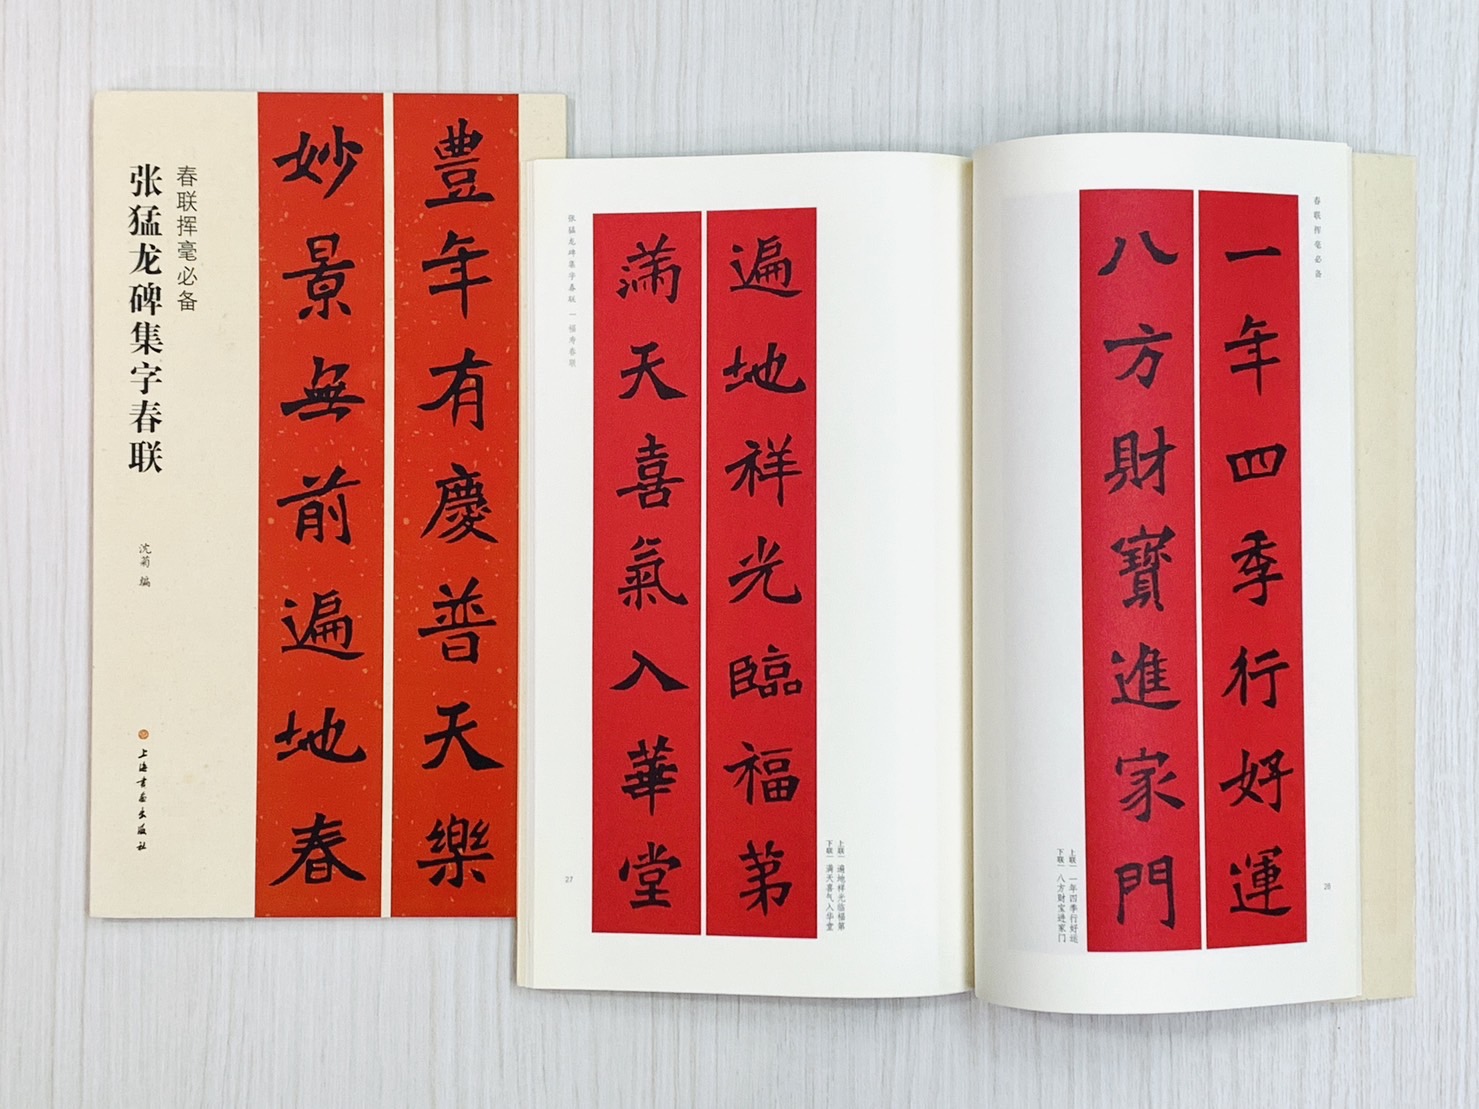 春联挥毫必备
张猛龙碑集字春联
沈菊 编
上海书画出版社
豐年有慶普天樂
妙景無前遍地春
春联挥毫必备
一年四季行好運
八方財寶進家門
上联｜一年四季行好运
下联｜八方财宝进家门
28
遍地祥光臨福第
满天喜氣入華堂
上联｜遍地祥光临福第
下联｜满天喜气入华堂
张猛龙碑集字春联｜福寿春联
27